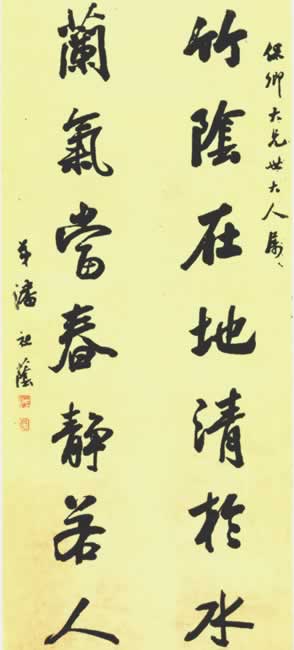 保卿大兄世大人属
竹陰在地清於水
蘭氣當春靜若人
弟潘祖蔭